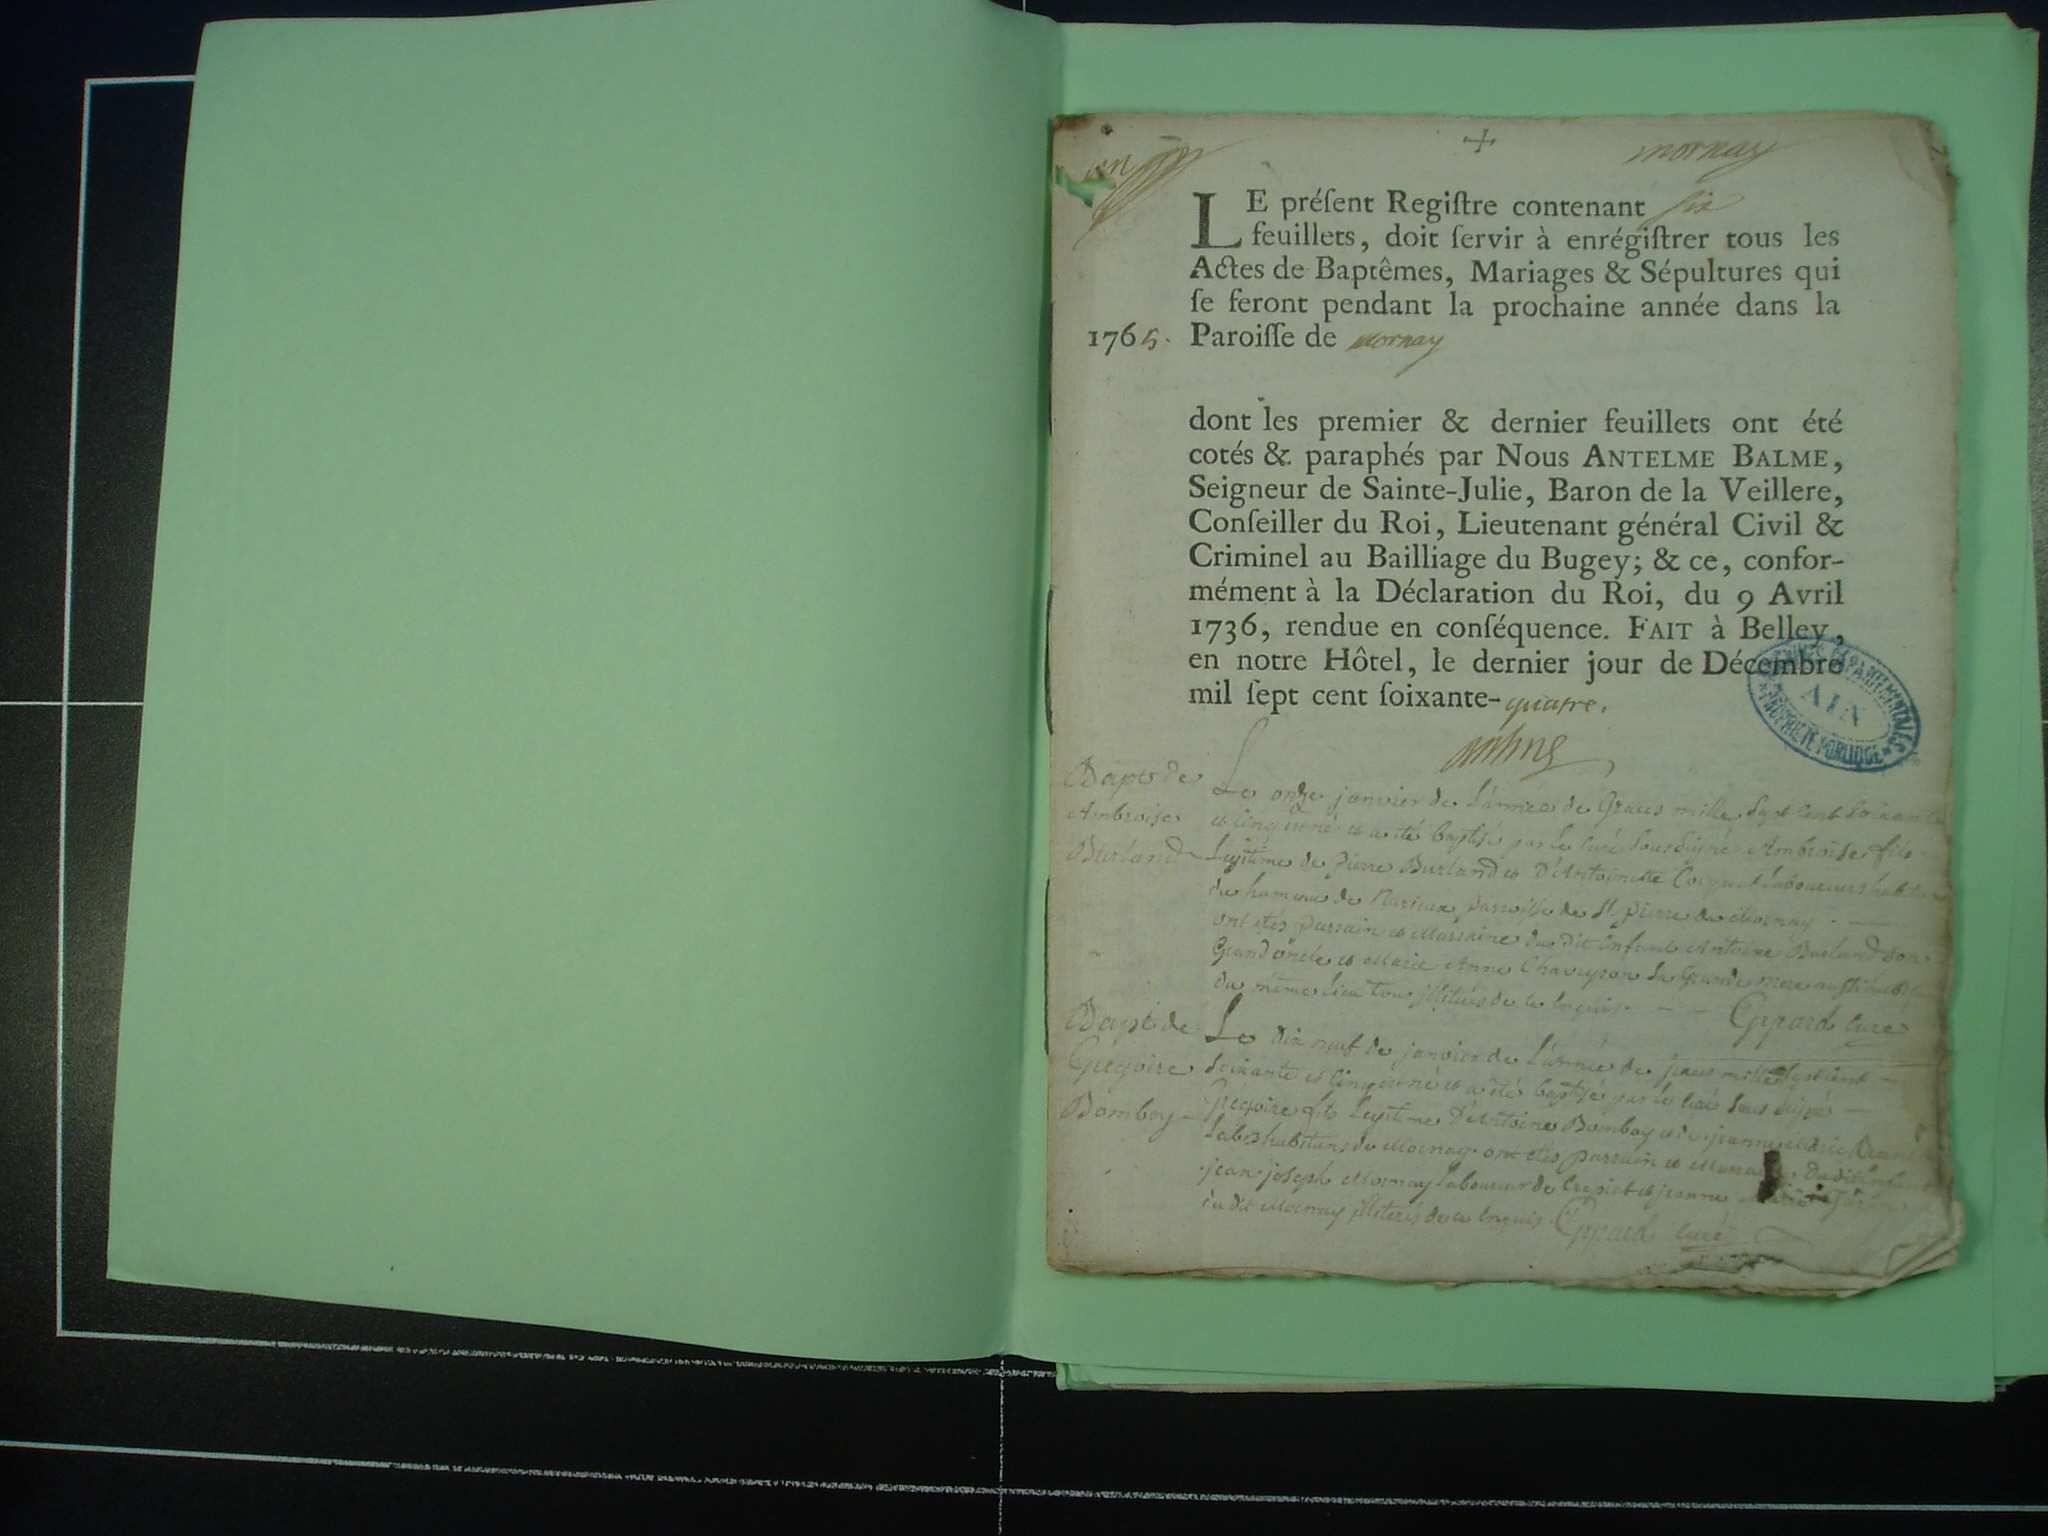 mornay
LE préſent Regiſtre contenant six
feuillets, doit ſervir à enrégiſtrer tous les
Actes de Baptêmes, Mariages & Sépultures qui
ſe feront pendant la prochaine année dans la
1765. Paroiſſe de mornay
dont les premier & dernier feuillets ont été
cotés & paraphés par Nous ANTELME BALME,
Seigneur de Sainte-Julie, Baron de la Veillere,
Conſeiller du Roi, Lieutenant général Civil &
Criminel au Bailliage du Bugey; & ce, confor-
mément à la Déclaration du Roi, du 9 Avril
1736, rendue en conſéquence. FAIT à Belley,
en notre Hôtel, le dernier jour de Décembre
mil ſept cent ſoixante-quatre.
ARCHIVES DÉPARTEMENTALES
AIN
PROPRIÉTÉ PUBLIQUE
Bapt de Ambroise Burland
Le onze janvier de L'année de Graces mille Sept Cent Soixante
et Cinq est né et a eté baptisé par le Curé Sous Signé Ambroise fils
Legitime de pierre Burland et D'Antoinette laboureurs
du hameau de parroisse de St. pierre de Mornay
ont etés parrain et Marraine du dit Enfant Antoine Burland son
Grand oncle et Marie Anne Sa Grande mere
du même lieu tous illiterés de ce Enquis. Curé
Bapt de Gregoire Bomboy
Le dix neuf de janvier de L'année de graces mille Sept cent
Soixante et Cinq est né et a eté baptisé par le Curé Sous Signé
Gregoire fils Legitime D'Antoine Bomboy et de jeanne Marie
habitans de Mornay ont etés parrain et Marraine du dit Enfant
jean joseph Mornay laboureur de et jeanne
du dit Mornay illiterés de ce Enquis Curé